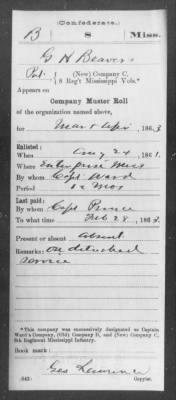 Confederate.
B 8 Miss.
G H Beavers
Pvt. (New) Company C,
8 Reg't Mississippi Vols.*
Appears on
Company Muster Roll
of the organization named above,
for Mar & Apr, 1863
Enlisted:
When Aug 24, 1861
Where Enterprise Miss
By whom Capt Ward
Period 12 Mos
Last paid:
By whom Capt Prince
To what time Feb 28, 1863.
Present or absent Absent
Remarks: On detached
service
*This company was successively designated as Captain
Ward's Company, (Old) Company D, and (New) Company C,
8th Regiment Mississippi Infantry.
Book mark:
(642) Geo Lawrence
Copyist.